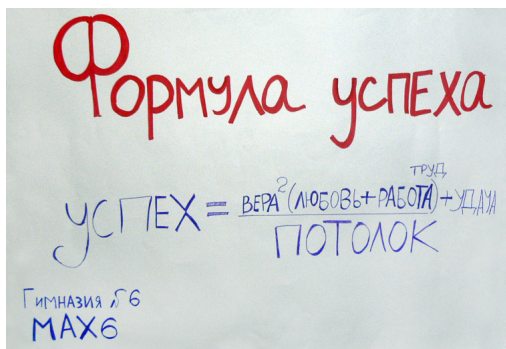 Формула успеха
УСПЕХ = ВЕРА²(ЛЮБОВЬ+РАБОТА)^ТРУД+УДАЧА
ПОТОЛОК
Гимназия №6
МАХ6